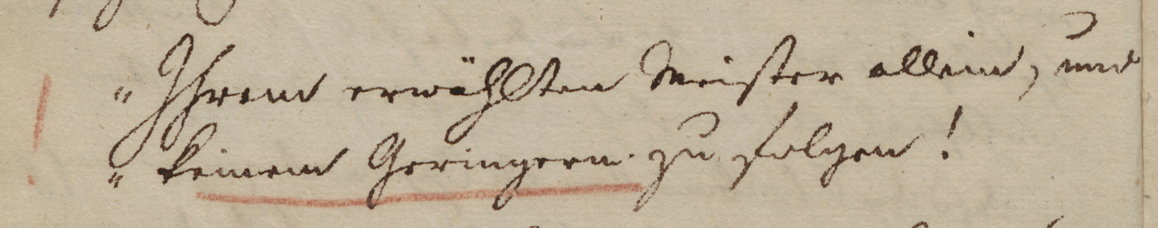 „Ihrem erwählten Meister allein, und
„keinem Geringern zu folgen!